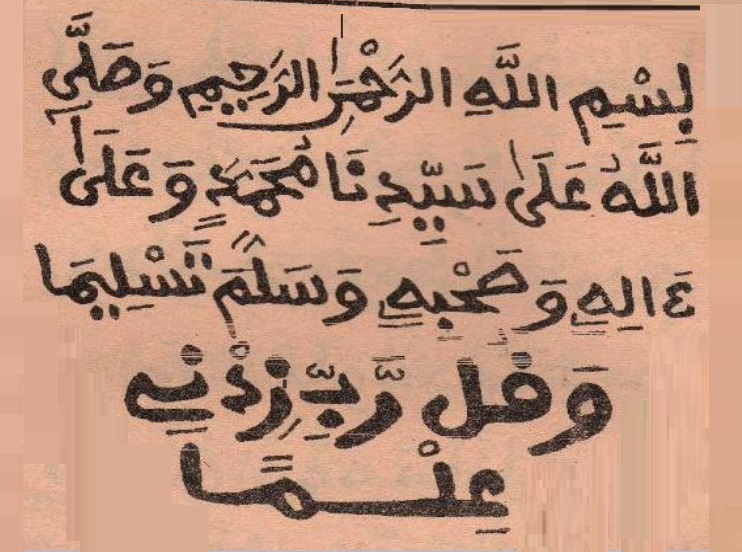 بِسْمِ اللَّهِ الرَّحْمَٰنِ الرَّحِيمِ وَصَلَّى
اللَّهُ عَلَىٰ سَيِّدِنَا مُحَمَّدٍ وَعَلَىٰ
ءَالِهِ وَصَحْبِهِ وَسَلَّمَ تَسْلِيمًا
وَقُل رَّبِّ زِدْنِي
عِلْمًا